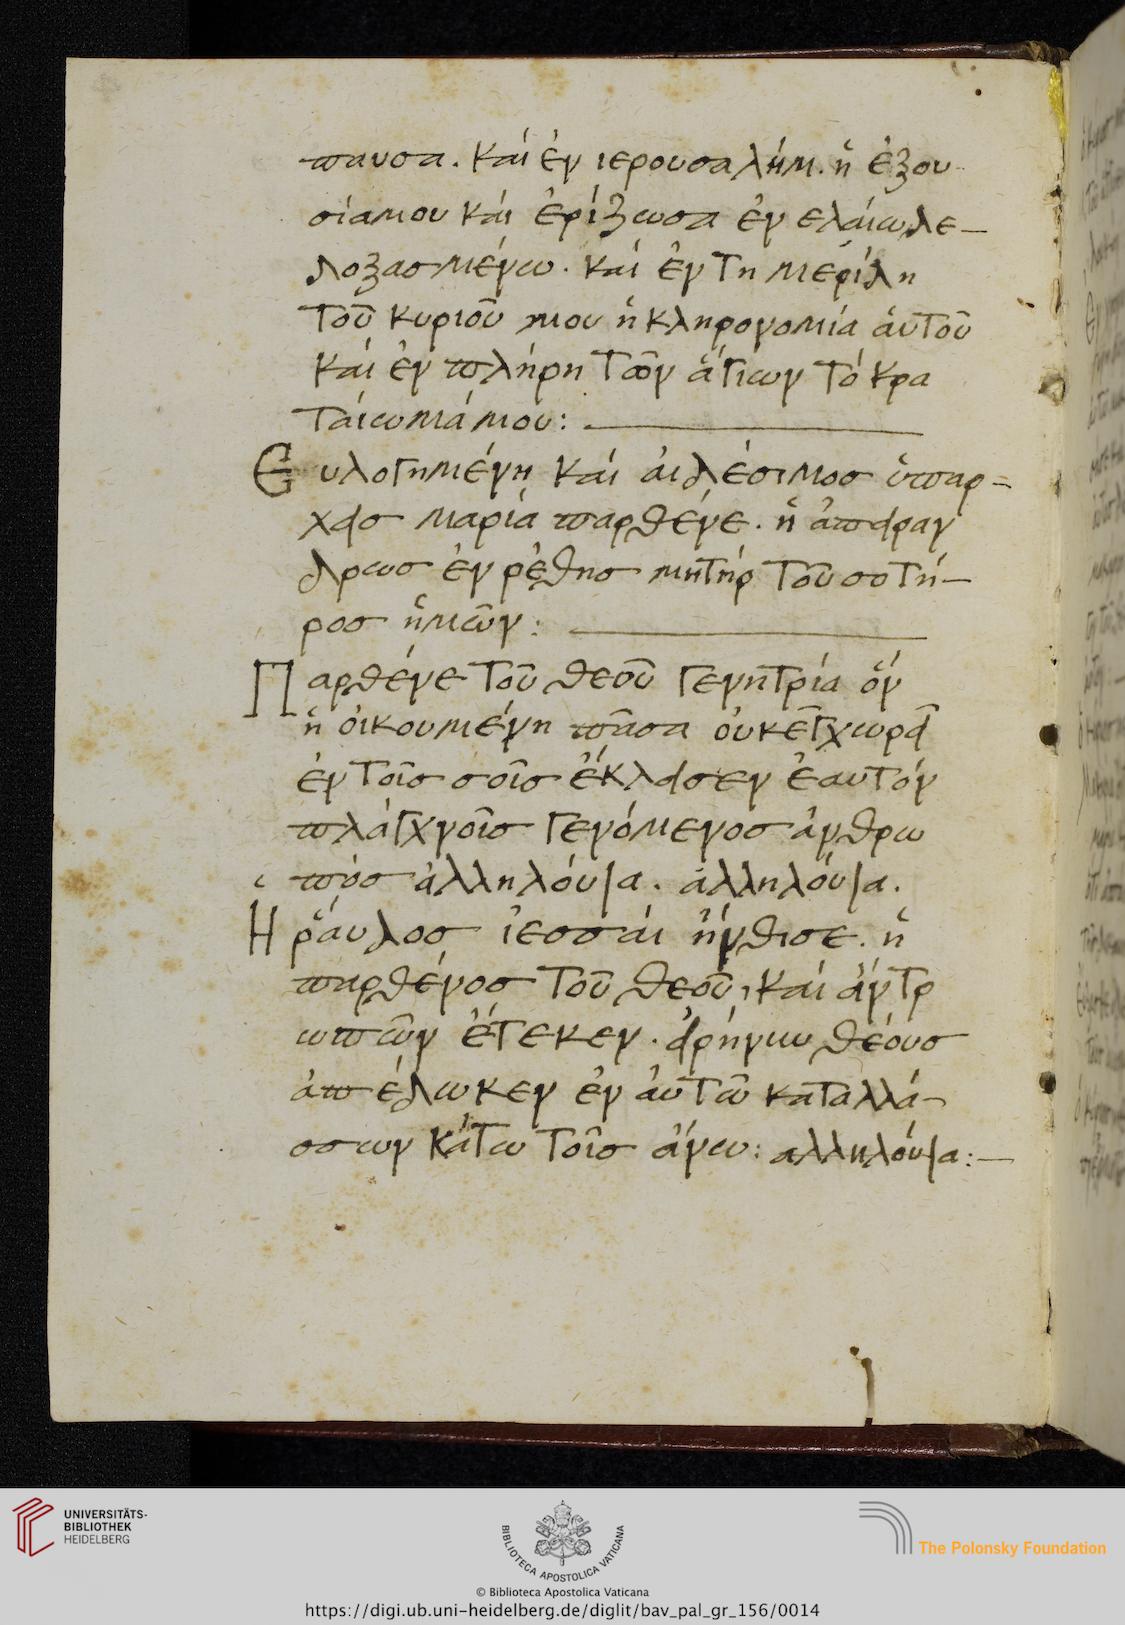 παυσα. καί ἐν ιερουσαλήμ. ἡ ἐξου
σίαμου καί ἐρίζωσα ἐν ελάιω δε-
δοξασμένω. καί ἐν τη μερίδη
τοῦ κυριοῦ μου ἡ κληρονομία ἀυτοῦ
καί ἐν πλήρη τῶν ἅγίων τό κρα
ταίωμά μου:
Ευλογημένη καί ἀιδέσιμοσ ὑπαρ=
χεισ μαρία παρθένε. ἡ ἀπειραν
δρωσ ἐν ρέθησ μητήρ τοῦ σοτή-
ροσ ἡμῶν:
Παρθένε τοῦ θεοῦ γενητρία ὅν
ἡ ὀικουμένη πᾶσα ὀυκ ἐγχωρεῖ
ἐν τοῖσ σοῖσ ἔκλεισεν ἑαυτόν
πλάγχνοῖσ γενόμενοσ ἀνθρω
πόσ ἀλληλόυϊα. ἀλληλόυϊα.
Η ῥάυδοσ ἰεσσάι ἤνθισε. ἡ
παρθένοσ τοῦ θεοῦ, καί ἄντρ
ωπῶν ἔτεκεν. εἰρήνιω θέουσ
ἀπέδωκεν ἐν ἀυτῶ καταλλά-
σσων κάτω τοῖσ ἄνω: αλληλόυϊα:-
UNIVERSITÄTS-
BIBLIOTHEK
HEIDELBERG
BIBLIOTECA APOSTOLICA VATICANA
The Polonsky Foundation
© Biblioteca Apostolica Vaticana
https://digi.ub.uni-heidelberg.de/diglit/bav_pal_gr_156/0014